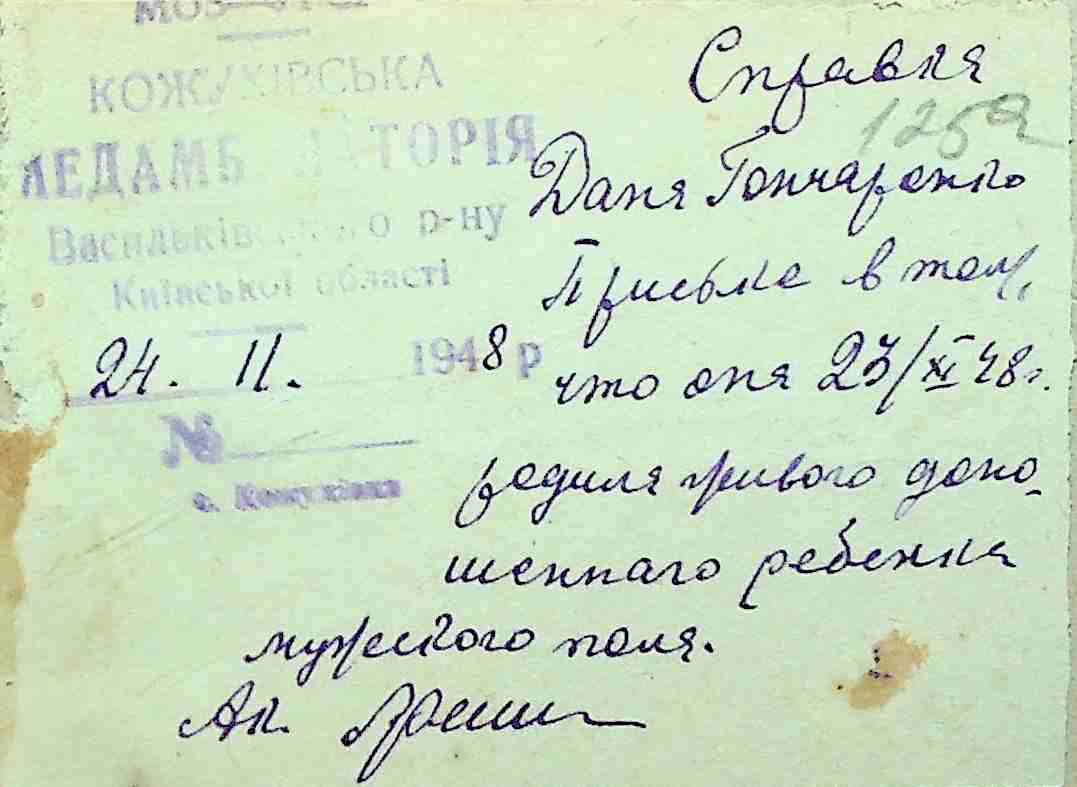 МОЗ УРСР
КОЖУХІВСЬКА
ЛЕДАМБ ЛАТОРІЯ
Васильківського р-ну
Київської області
24. 11. 1948 р
№
с. Кожухівка
Справка
125а
Дана Гончаренко
Приська в том,
что она 23/XI 48 г.
родила живого доно-
шеннаго ребенка
мужского пола.
Ак.